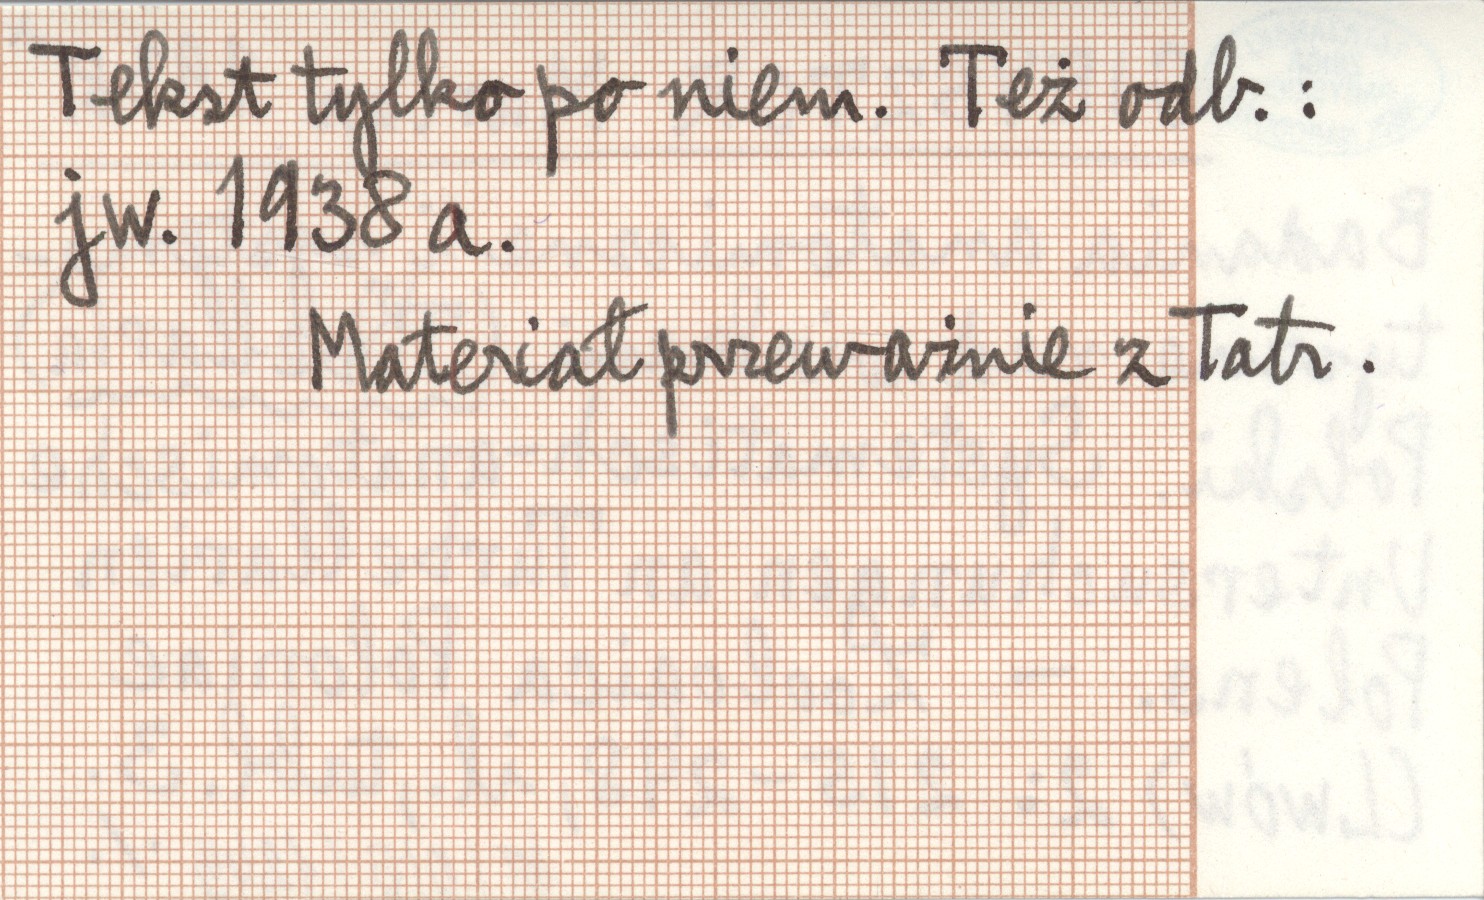 Tekst tylko po niem. Też odb.:
jw. 1938a.
Materiał przeważnie z Tatr.